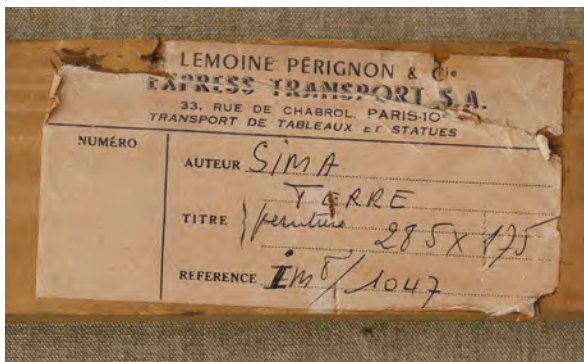 LEMOINE PÉRIGNON & Cie
EXPRESS TRANSPORT S.A.
33, RUE DE CHABROL, PARIS-10e
TRANSPORT DE TABLEAUX ET STATUES
NUMÉRO
AUTEUR SIMA
TERRE
TITRE } peinture 285 x 175
REFERENCE Imō/1047